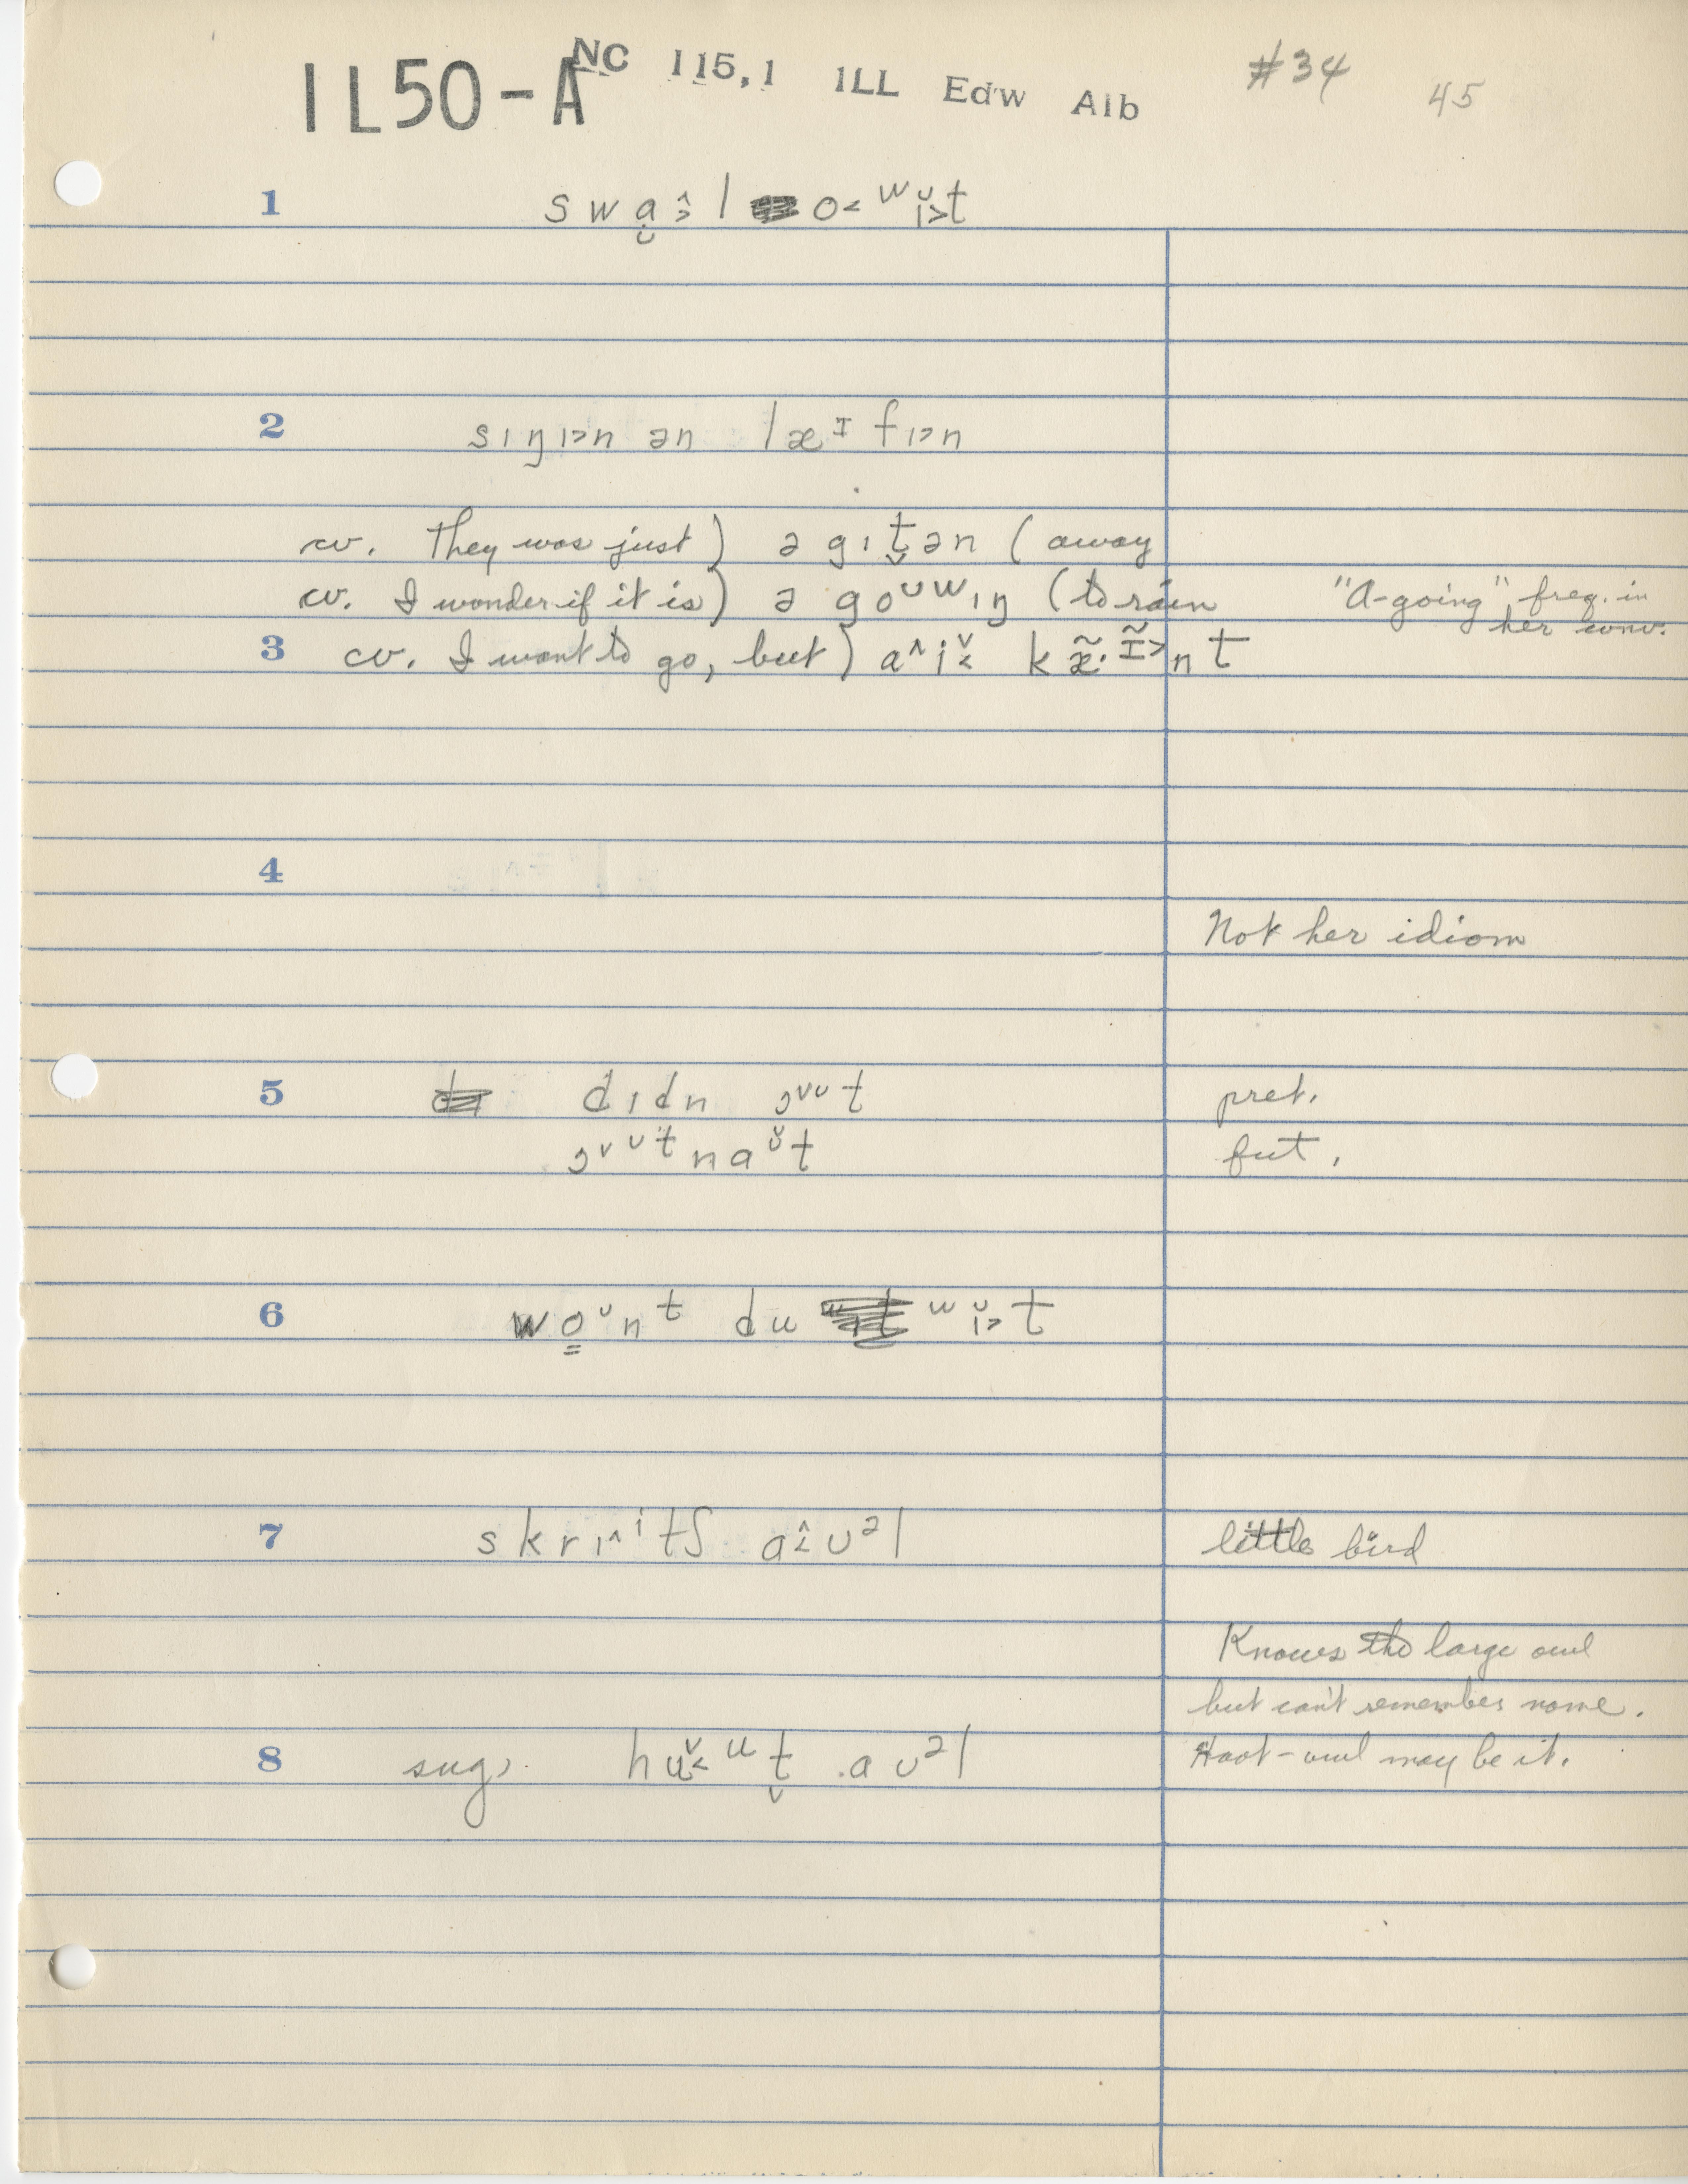 IL50-A NC 115,1 ILL Edw Alb #34 45
1 swɑ̬ɔ̂l o˂ ʷɪ̯˃t
2 sɪŋɪ˃n ən læᶦfɪ˃n
cv. They was just) ə gɪt̬ən (away
cv. I wonder if it is) ə goᶷʷɪŋ (to rain "A-going" freq. in
her conv.
3 cv. I want to go, but) a^i˅˂ kæ̃·ɪ̃˃nt
4
Not her idiom
5 dɪdn ɔ˅ᶷt pret.
ɔ˅ᶷᵗnaᶷ̌t fut.
6 wo̳ᶷnᵗ du ʷɪ̯˃t
7 skrɪ^ⁱtʃ a^˂ʊᵊl little bird
Knows the large owl
but can't remember name.
8 sug. hu˅˂ᵘt̬ aʊᵊl Hoot-owl may be it.